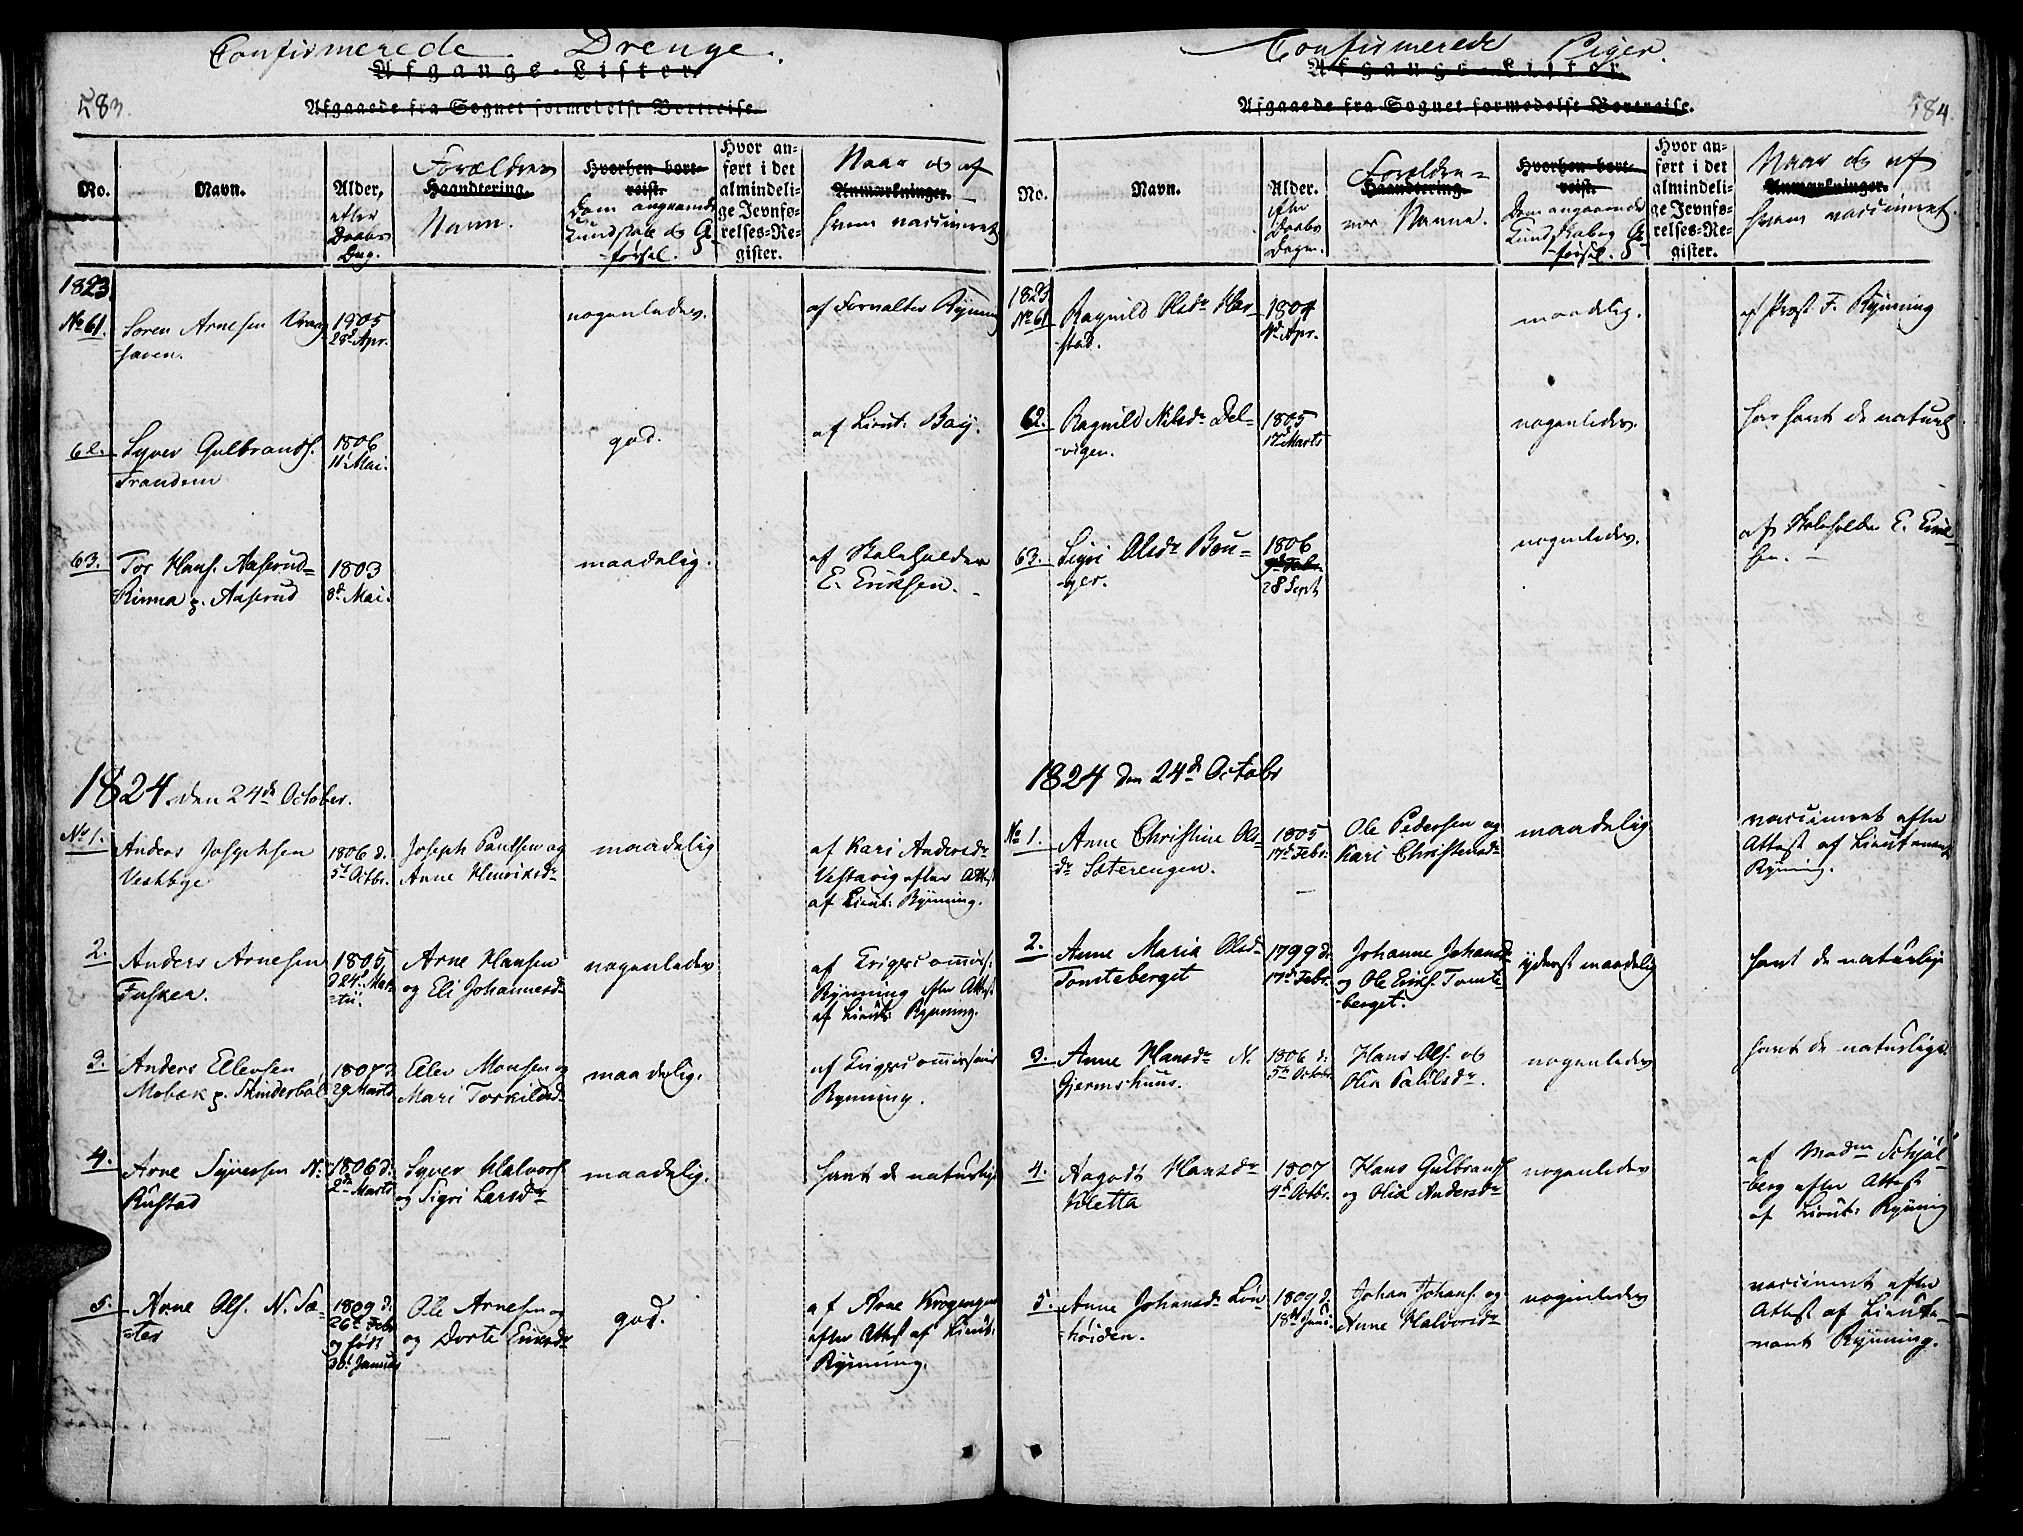 Confirmerede Drenge.
Afgangs-Lister
583.
Afgaaede fra Sognet formedelst Bortreise.
No.
Navn.
Alder,
efter
Daabs
Dag.
Forældrenes
Haandtering.
Navn.
Hvorhen bort-
reist.
Dom angaaende
Kundskab og O-
pførsel.
Hvor an-
ført i det
almindeli-
ge Jevnfø-
relses-Re-
gister.
Naar og af
Anmærkninger.
hvem vaccineret
1823
No 61.
Søren Arnesen
haven.
1805
28d Apr.
nogenledes.
af Forvalter Rynning
62.
Syver Gulbrands.
Trandem
1806
11t Mai.
god.
af Lieut: Bay.
63.
Tor Hans. Aaserud-
Rinna p. Aaserud
1803
8d Mai.
maadelig.
af Skoleholder
E. Eriksen.
1824 den 24de October.
No 1.
Anders Josephsen
Vestbye
1806 d.
5t Octbr.
Joseph Paulsen og
Anne Henriksdr
maadelig
af Kari Andersdr
Vestavig efter Attest
af Lieut: Rynning.
2.
Anders Arnesen
Fusker.
1805
d 24 Mar-
tii.
Arne Hansen
og Eli Johannesdr
nogenledes
af Krigscommiss:
Rynning efter Attest
af Lieut: Rynning.
3.
Anders Ellevsen
Mobæk p. Skinderbøl
1807 d.
29 Marts
Ellev Monsen og
Mari Torkildsdr
maadelig.
af Krigscommissair
Rynning.
4.
Arne Syversen N.
Rustad
1806 d.
2den Marts
Syver Halvors.
og Sigri Larsdr
maadelig.
havt de naturlige
5.
Arne Ols. N. Sæ-
ter
1809 d.
26t Febr
og født
30t Januar
Ole Arnesen og
og Dorte Eriksdr
god.
af Arne Krogengen
efter Attest af Lieut:
Rynning.
Confirmerede Piger.
Afgangs-Lister.
Afgaaede fra Sognet formedelst Bortreise.
584.
No.
Navn.
Alder.
efter
Daabs
Dagen.
Forældre-
Haandtering.
nes Navne.
Hvorhen bort-
reist.
Dom angaaende
Kundskab og O-
pførsel.
Hvor an-
ført i det
almindeli-
ge Jevnfø-
relses-Re-
gister.
Naar og af
Anmærkninger.
hvem vaccineret.
1823
No 61
Ragnild Olsdr Har-
stad.
1804
Apr.
maadelig.
af Prost F. Rynning
62.
Ragnild Nilsdr Døl-
vigen.
1805
17d Marts
nogenledes.
har havt de naturl
63.
Sigri Olsdr Bru-
ger.
1806
28 Sept
nogenledes.
af Skoleholder E. Erik-
sen.
1824 den 24de Octobr
No 1.
Anne Christine Ols-
dr Sæterengen.
1805
17d Febr.
Ole Pedersen og
Kari Christensdr
maadelig
vaccineret efter
Attest af Lieutenant
Rynning.
2.
Anne Maria Olsdr
Tomteberget
1799 d.
17d Febr.
Johanne Johansdr
og Ole Eriks. Tomte-
berget.
yderst maadelig
havt de naturlige
3.
Anne Hansdr N.
Gjermshuus.
1806 d.
5te Octobr
Hans Ols. og
Olia Paulsdr.
nogenledes
havt de naturlige
4.
Aagodt Hansdr
Kletta
1807
9d Octbr.
Hans Gulbrands.
og Olia Andersdr
nogenledes
af Madm Schjøl-
berg efter Attest
af Lieut: Rynning
5.
Anne Johansdr Løn-
høiden.
1809 d.
18d Juni.
Johan Johans. og
Anne Halvorsdr
nogenledes
vaccineret efter
Attest af Lieute-
nant Rynning.